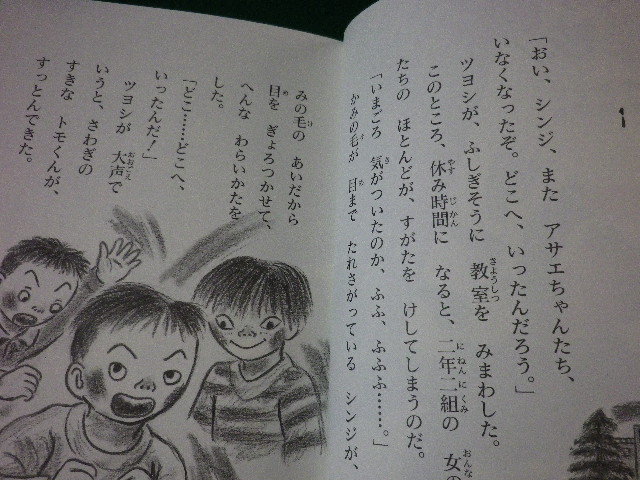 1
「おい、シンジ、また アサエちゃんたち、
いなくなったぞ。どこへ、いったんだろう。」
ツヨシが、ふしぎそうに 教室を みまわした。
このところ、休み時間に なると、二年二組の 女の
たちの ほとんどが、すがたを けしてしまうのだ。
「いまごろ 気がついたのか、ふふ、ふふふ……。」
かみの毛が 目まで たれさがっている シンジが、
みの毛の あいだから
目を ぎょろつかせて、
へんな わらいかたを
した。
「どこ……どこへ、
いったんだ！」
ツヨシが 大声で
いうと、さわぎの
すきな トモくんが、
すっとんできた。